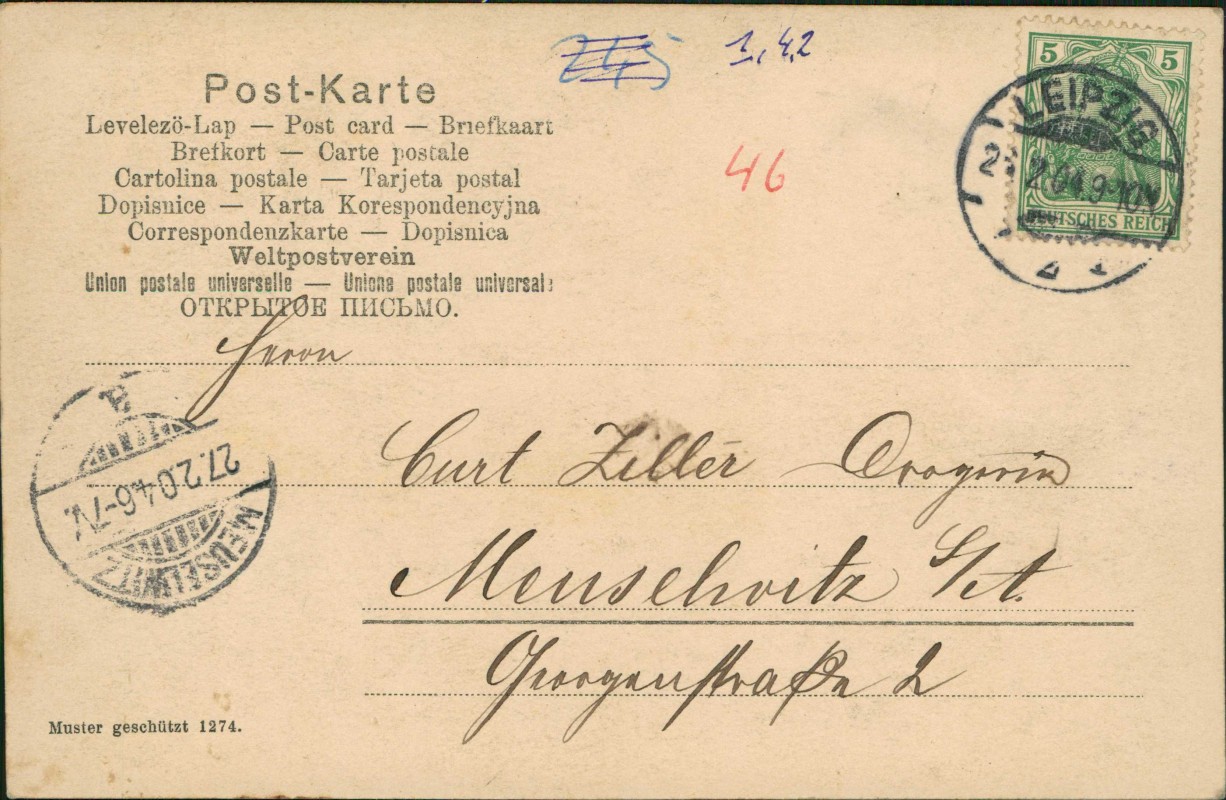 245
1,42
46
5 5
DEUTSCHES REICH
LEIPZIG
2.04.9-10V
Post-Karte
Levelezö-Lap — Post card — Briefkaart
Brefkort — Carte postale
Cartolina postale — Tarjeta postal
Dopisnice — Karta Korespondencyjna
Correspondenzkarte — Dopisnica
Weltpostverein
Union postale universelle — Unione postale universale
ОТКРЫТОЕ ПИСЬМО.
Herrn
Curt Ziller Drogerie
Meuselwitz S/A.
Georgenstraße 2
MEUSELWITZ
27.2.04.6-7V.
Muster geschützt 1274.